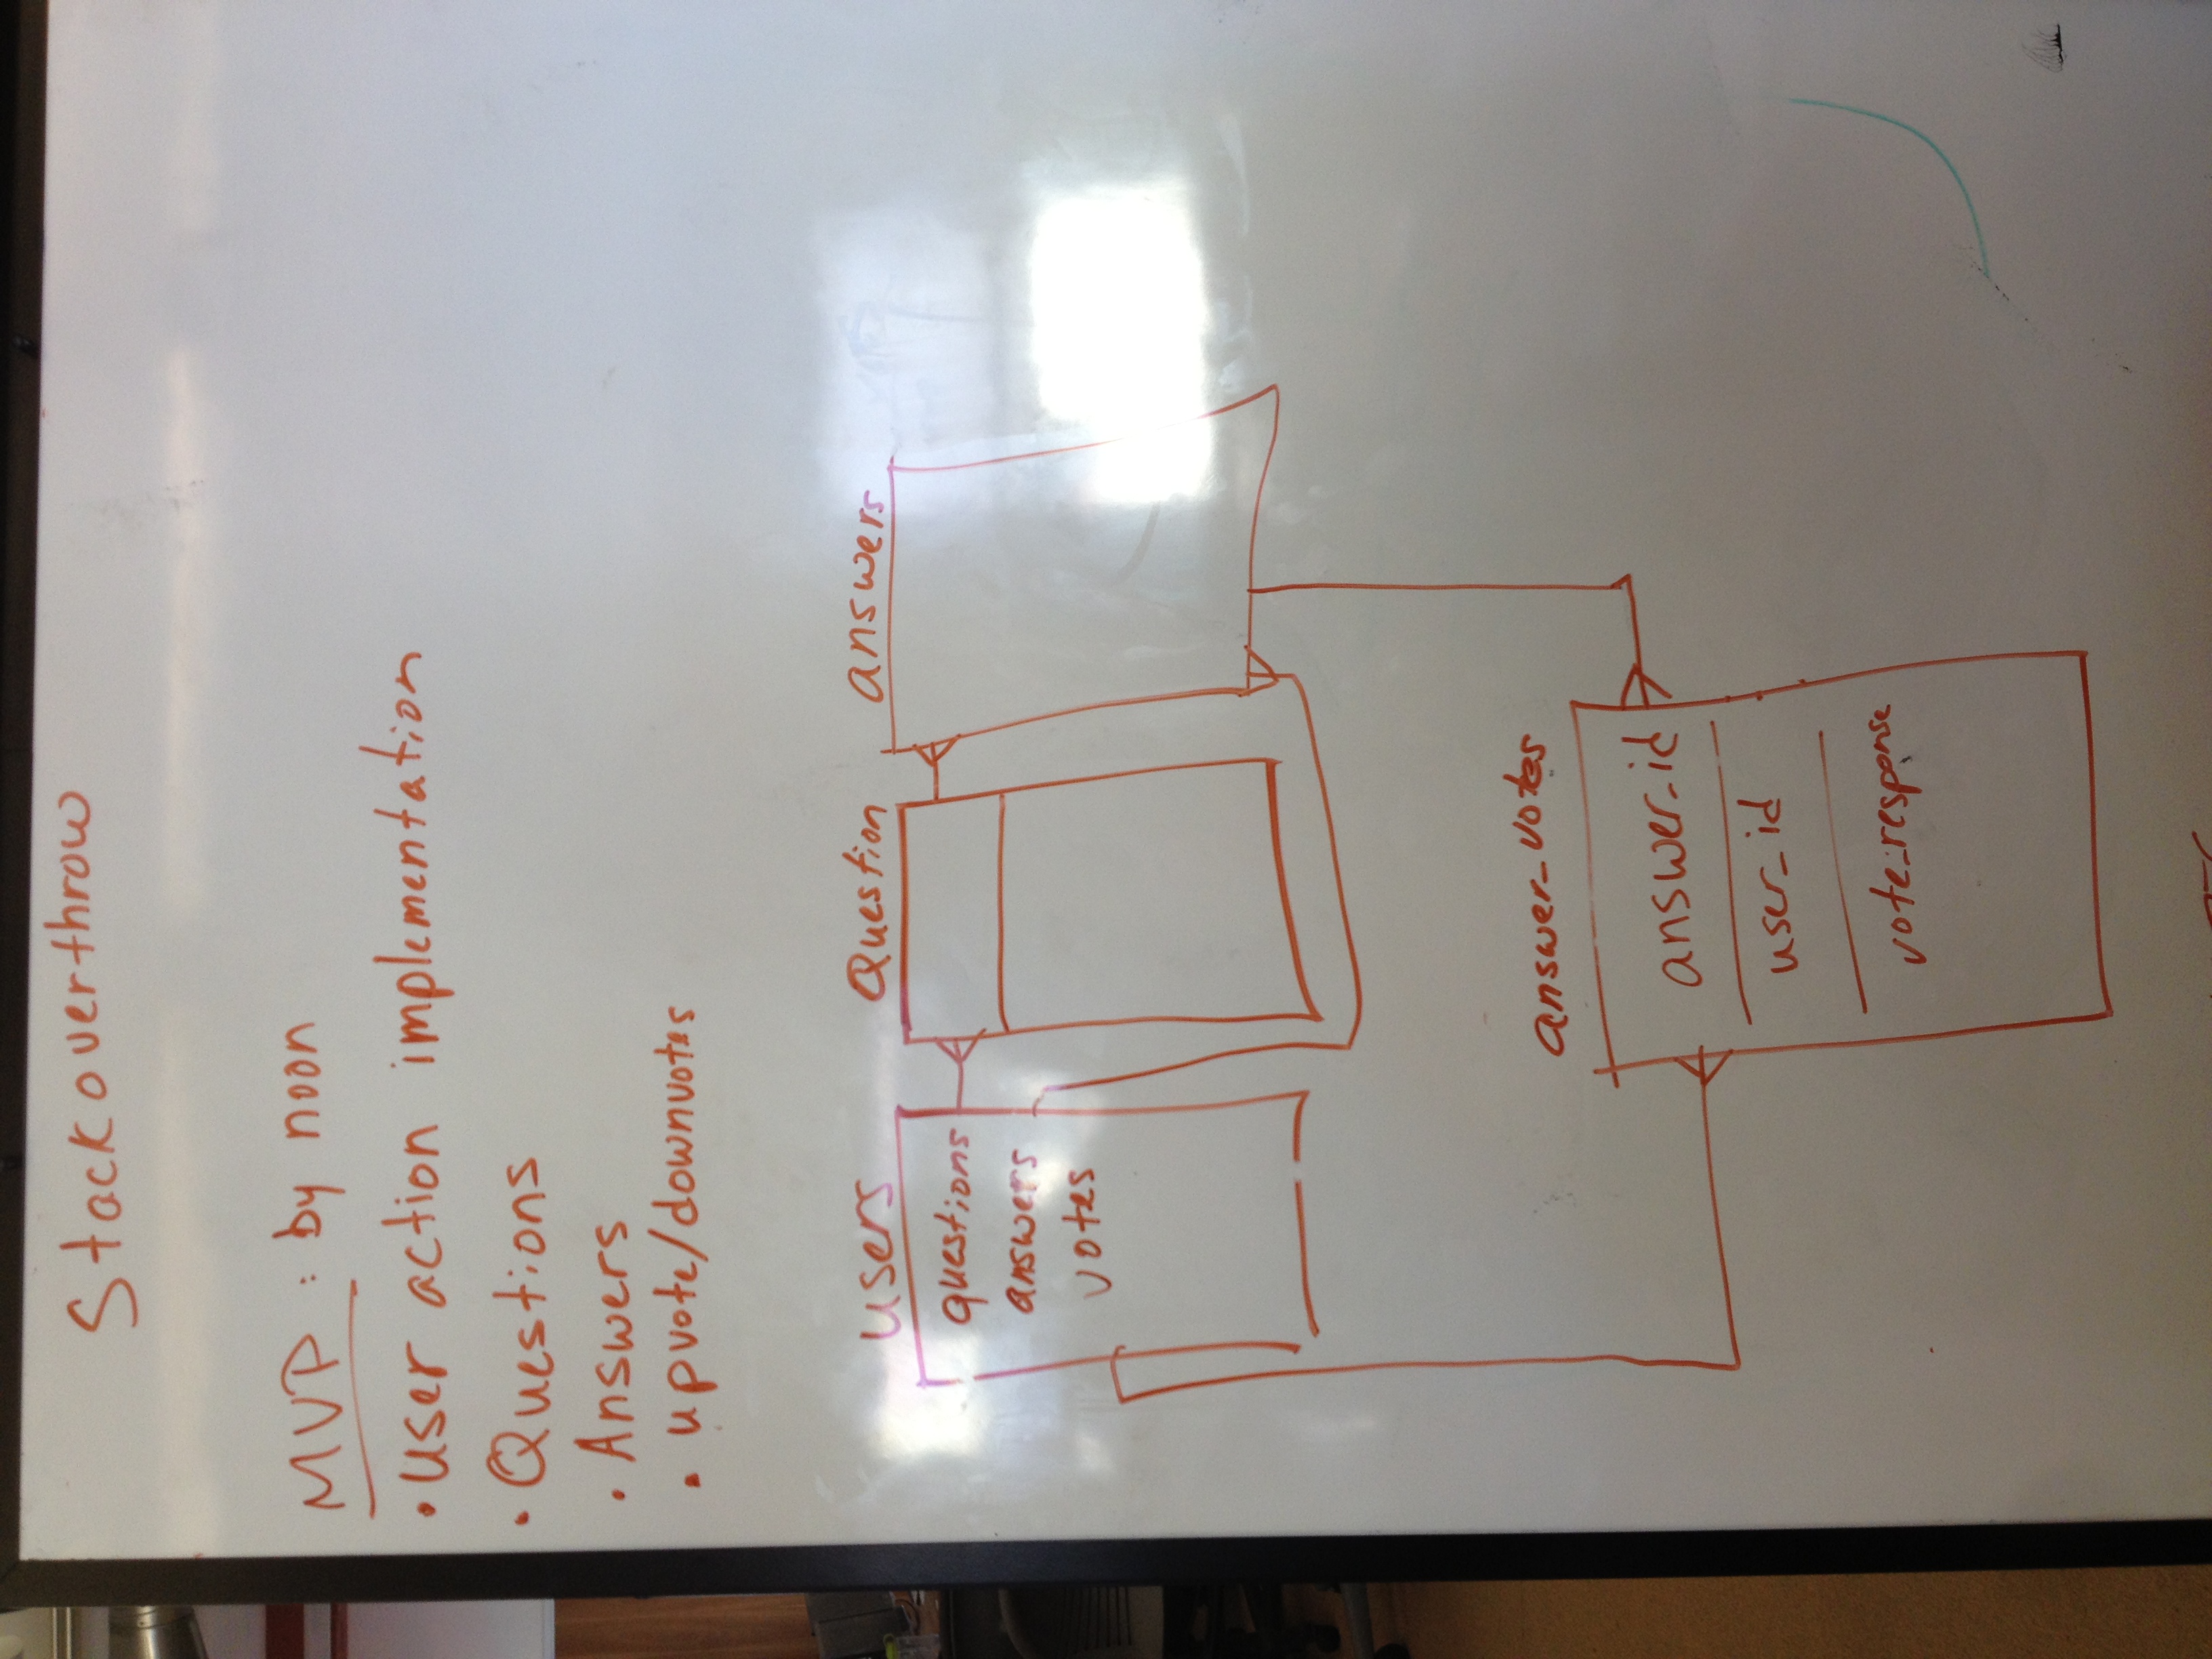 Stackoverthrow
MVP : by noon
• user action implementation
• Questions
• Answers
• upvote/downvotes
users
Question
answers
questions
answers
votes
answer_votes
answer_id
user_id
vote_response